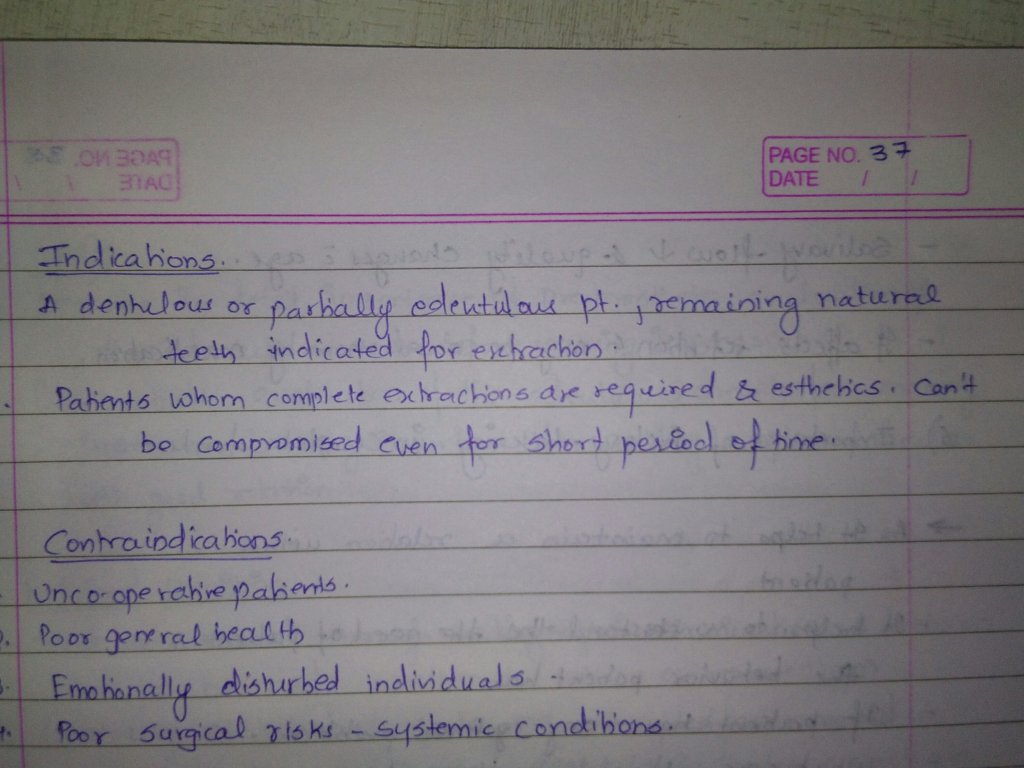 PAGE NO. 37
DATE / /
Indications.
A dentulous or partially edentulous pt., remaining natural
teeth indicated for extraction.
. Patients whom complete extractions are required & esthetics. Can't
be compromised even for short period of time.
Contraindications.
Unco-operative patients.
. Poor general health
. Emotionally disturbed individuals.
. Poor surgical risks - systemic conditions.